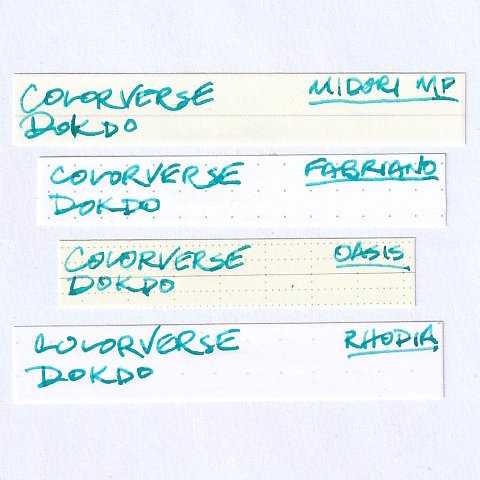 COLORVERSE MIDORI MP
DOKDO
COLORVERSE FABRIANO
DOKDO
COLORVERSE OASIS
DOKDO
COLORVERSE RHODIA
DOKDO